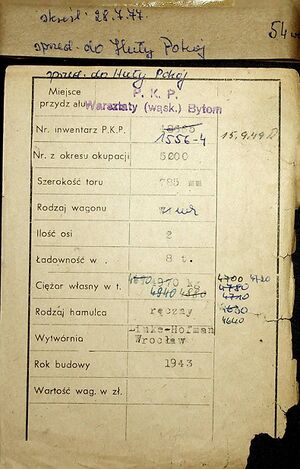 skreśl. 28.7.77.
sprzed. do Huty Pokój
54
sprzed. do Huty Pokój
Miejsce przydziału
P. K. P.
Warsztaty (wąsk.) Bytom
Nr. inwentarz P.K.P.
1556-4
15.9.49
Nr. z okresu okupacji
5000
Szerokość toru
785 mm
Rodzaj wagonu
Ilość osi
2
Ładowność w .
8 t.
Ciężar własny w t.
4970 kg
4940
4700
4780
4710
4650
4640
Rodzaj hamulca
ręczny
Wytwórnia
Linke-Hofman
Wrocław
Rok budowy
1943
Wartość wag. w zł.